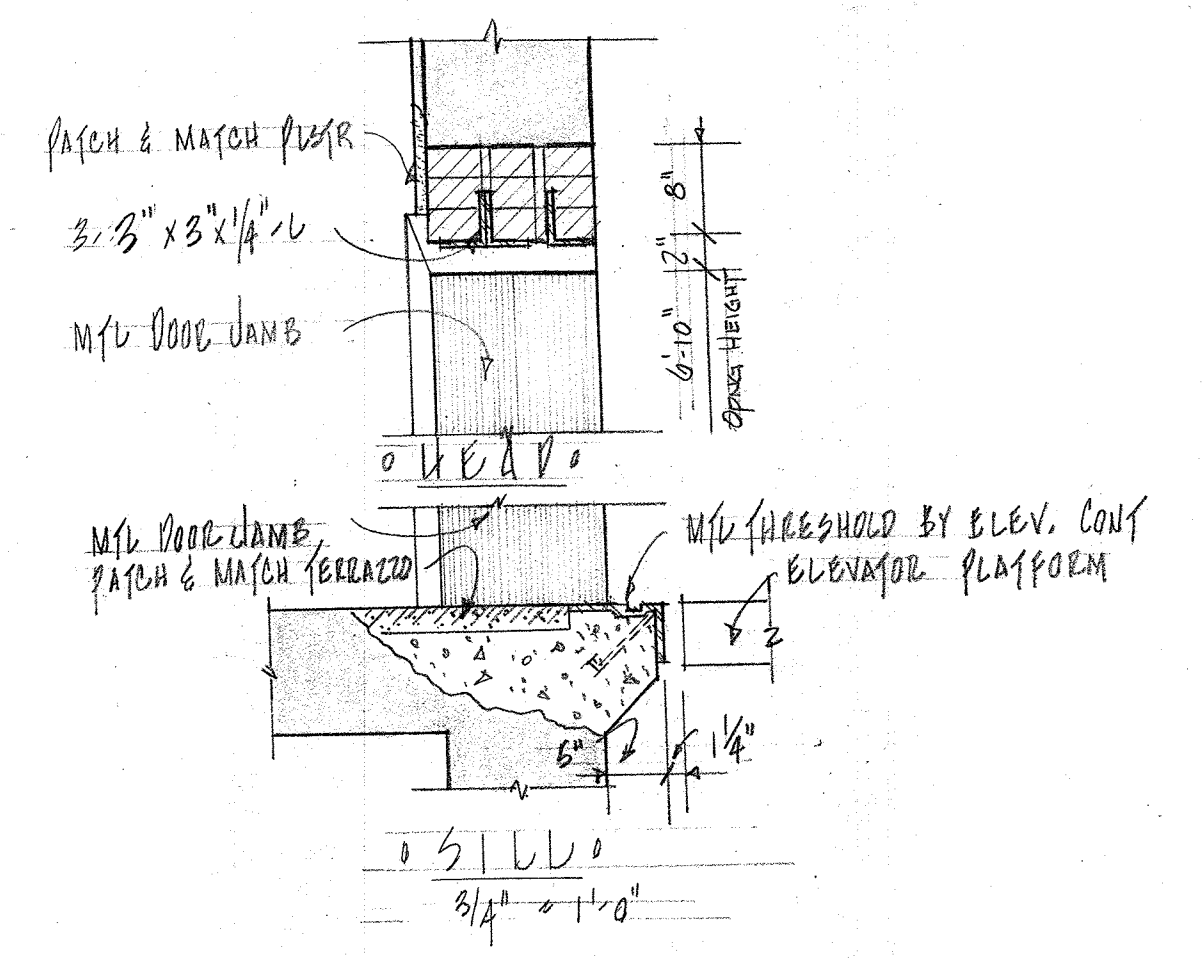 PATCH & MATCH PLSTR
3-3" x 3" x 1/4" L
MTL DOOR JAMB
8"
2"
6'-10"
OPNG HEIGHT
HEAD
MTL DOOR JAMB
PATCH & MATCH TERRAZZO
MTL THRESHOLD BY ELEV. CONT
ELEVATOR PLATFORM
5"
1 1/4"
SILL
3/4" = 1'-0"